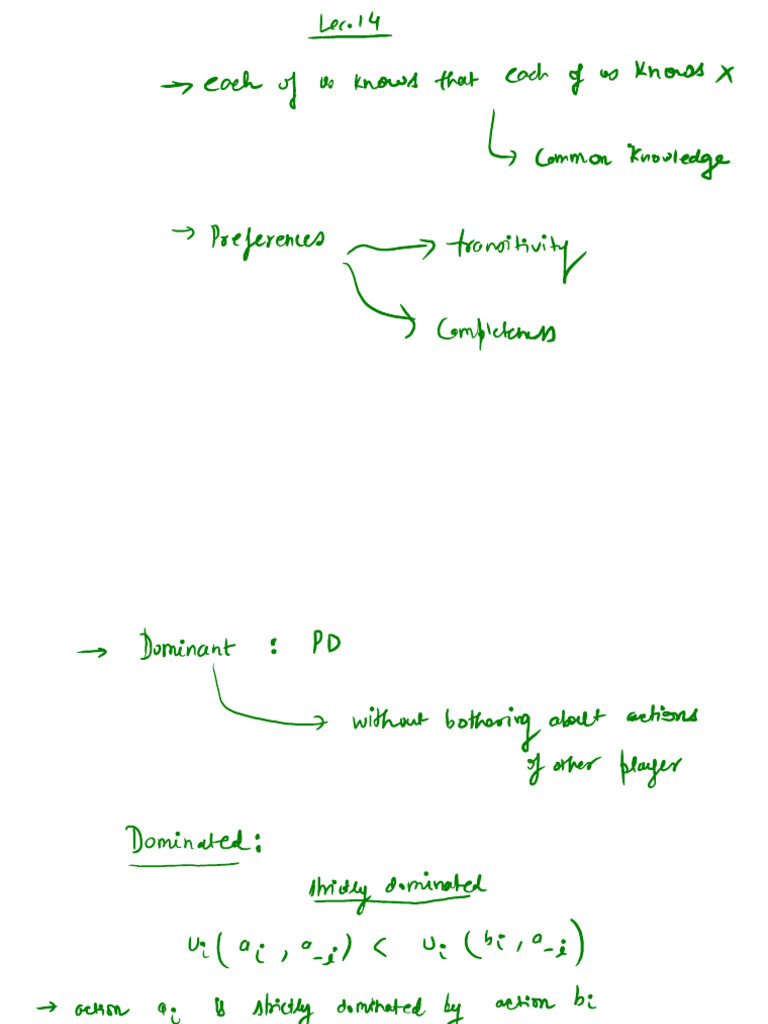 Lec.14
→ each of us knows that each of us knows X
↳ Common Knowledge
→ Preferences → transitivity
→ Completeness
→ Dominant : PD
→ without bothering about actions
of other player
Dominated :
strictly dominated
Ui ( ai , a-i ) < Ui ( bi , a-i )
→ action ai is strictly dominated by action bi